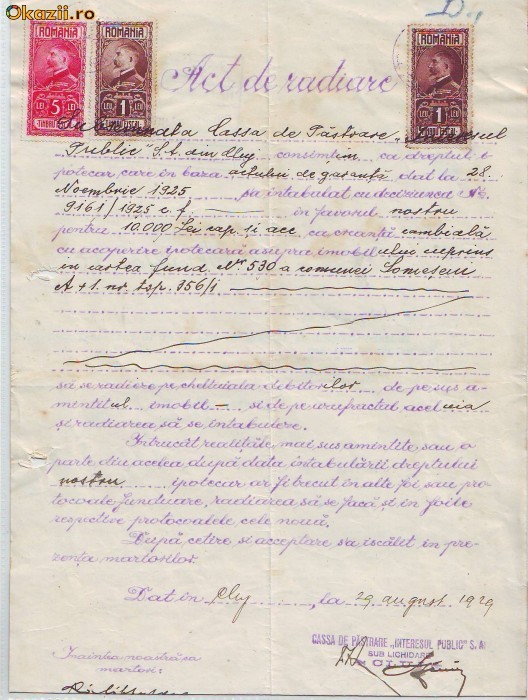 Okazii.ro
ROMANIA
5 LEI
TIMBRU FISCAL
ROMANIA
LEI 1 LEU
TIMBRU FISCAL
ROMANIA
1
TIMBRU FISCAL
Act de radiare
Subsemnata Cassa de Păstrare „Interesul
Public" S.A. din Cluj consimțim ca dreptul i-
potecar, care in baza actului de garanță dat la 28
Noembrie 1925 s'a intabulat cu deciziunea No
9161/1925 c.f. in favorul nostru
pentru 10.000 Lei cap. și acc. ca creanță cambială
cu acoperire ipotecară asupra imobilului cuprins
in cartea fund. No 530 a comunei Someșeu
A + 1. nr. top. 356/1
să se radieze pe cheltuiala debitorilor de pe sus a-
mintitul imobil – și de pe uzufructul aceluia
și radiarea să se intabuleze.
Intrucât realitățile mai sus amintite sau o
parte din acelea după data intabulării dreptului
nostru ipotecar ar fi trecut in alte foi sau pro-
tocoale funduare, radiarea să se facă și in foile
respective protocoalele cele nouă.
După cetire și acceptare s'a iscălit in pre-
zența martorilor.
Dat in Cluj, la 29 august 1929
CASSA DE PĂSTRARE „INTERESUL PUBLIC" S. A.
SUB LICHIDARE
CLUJ
Inaintea noastră ca
martori: